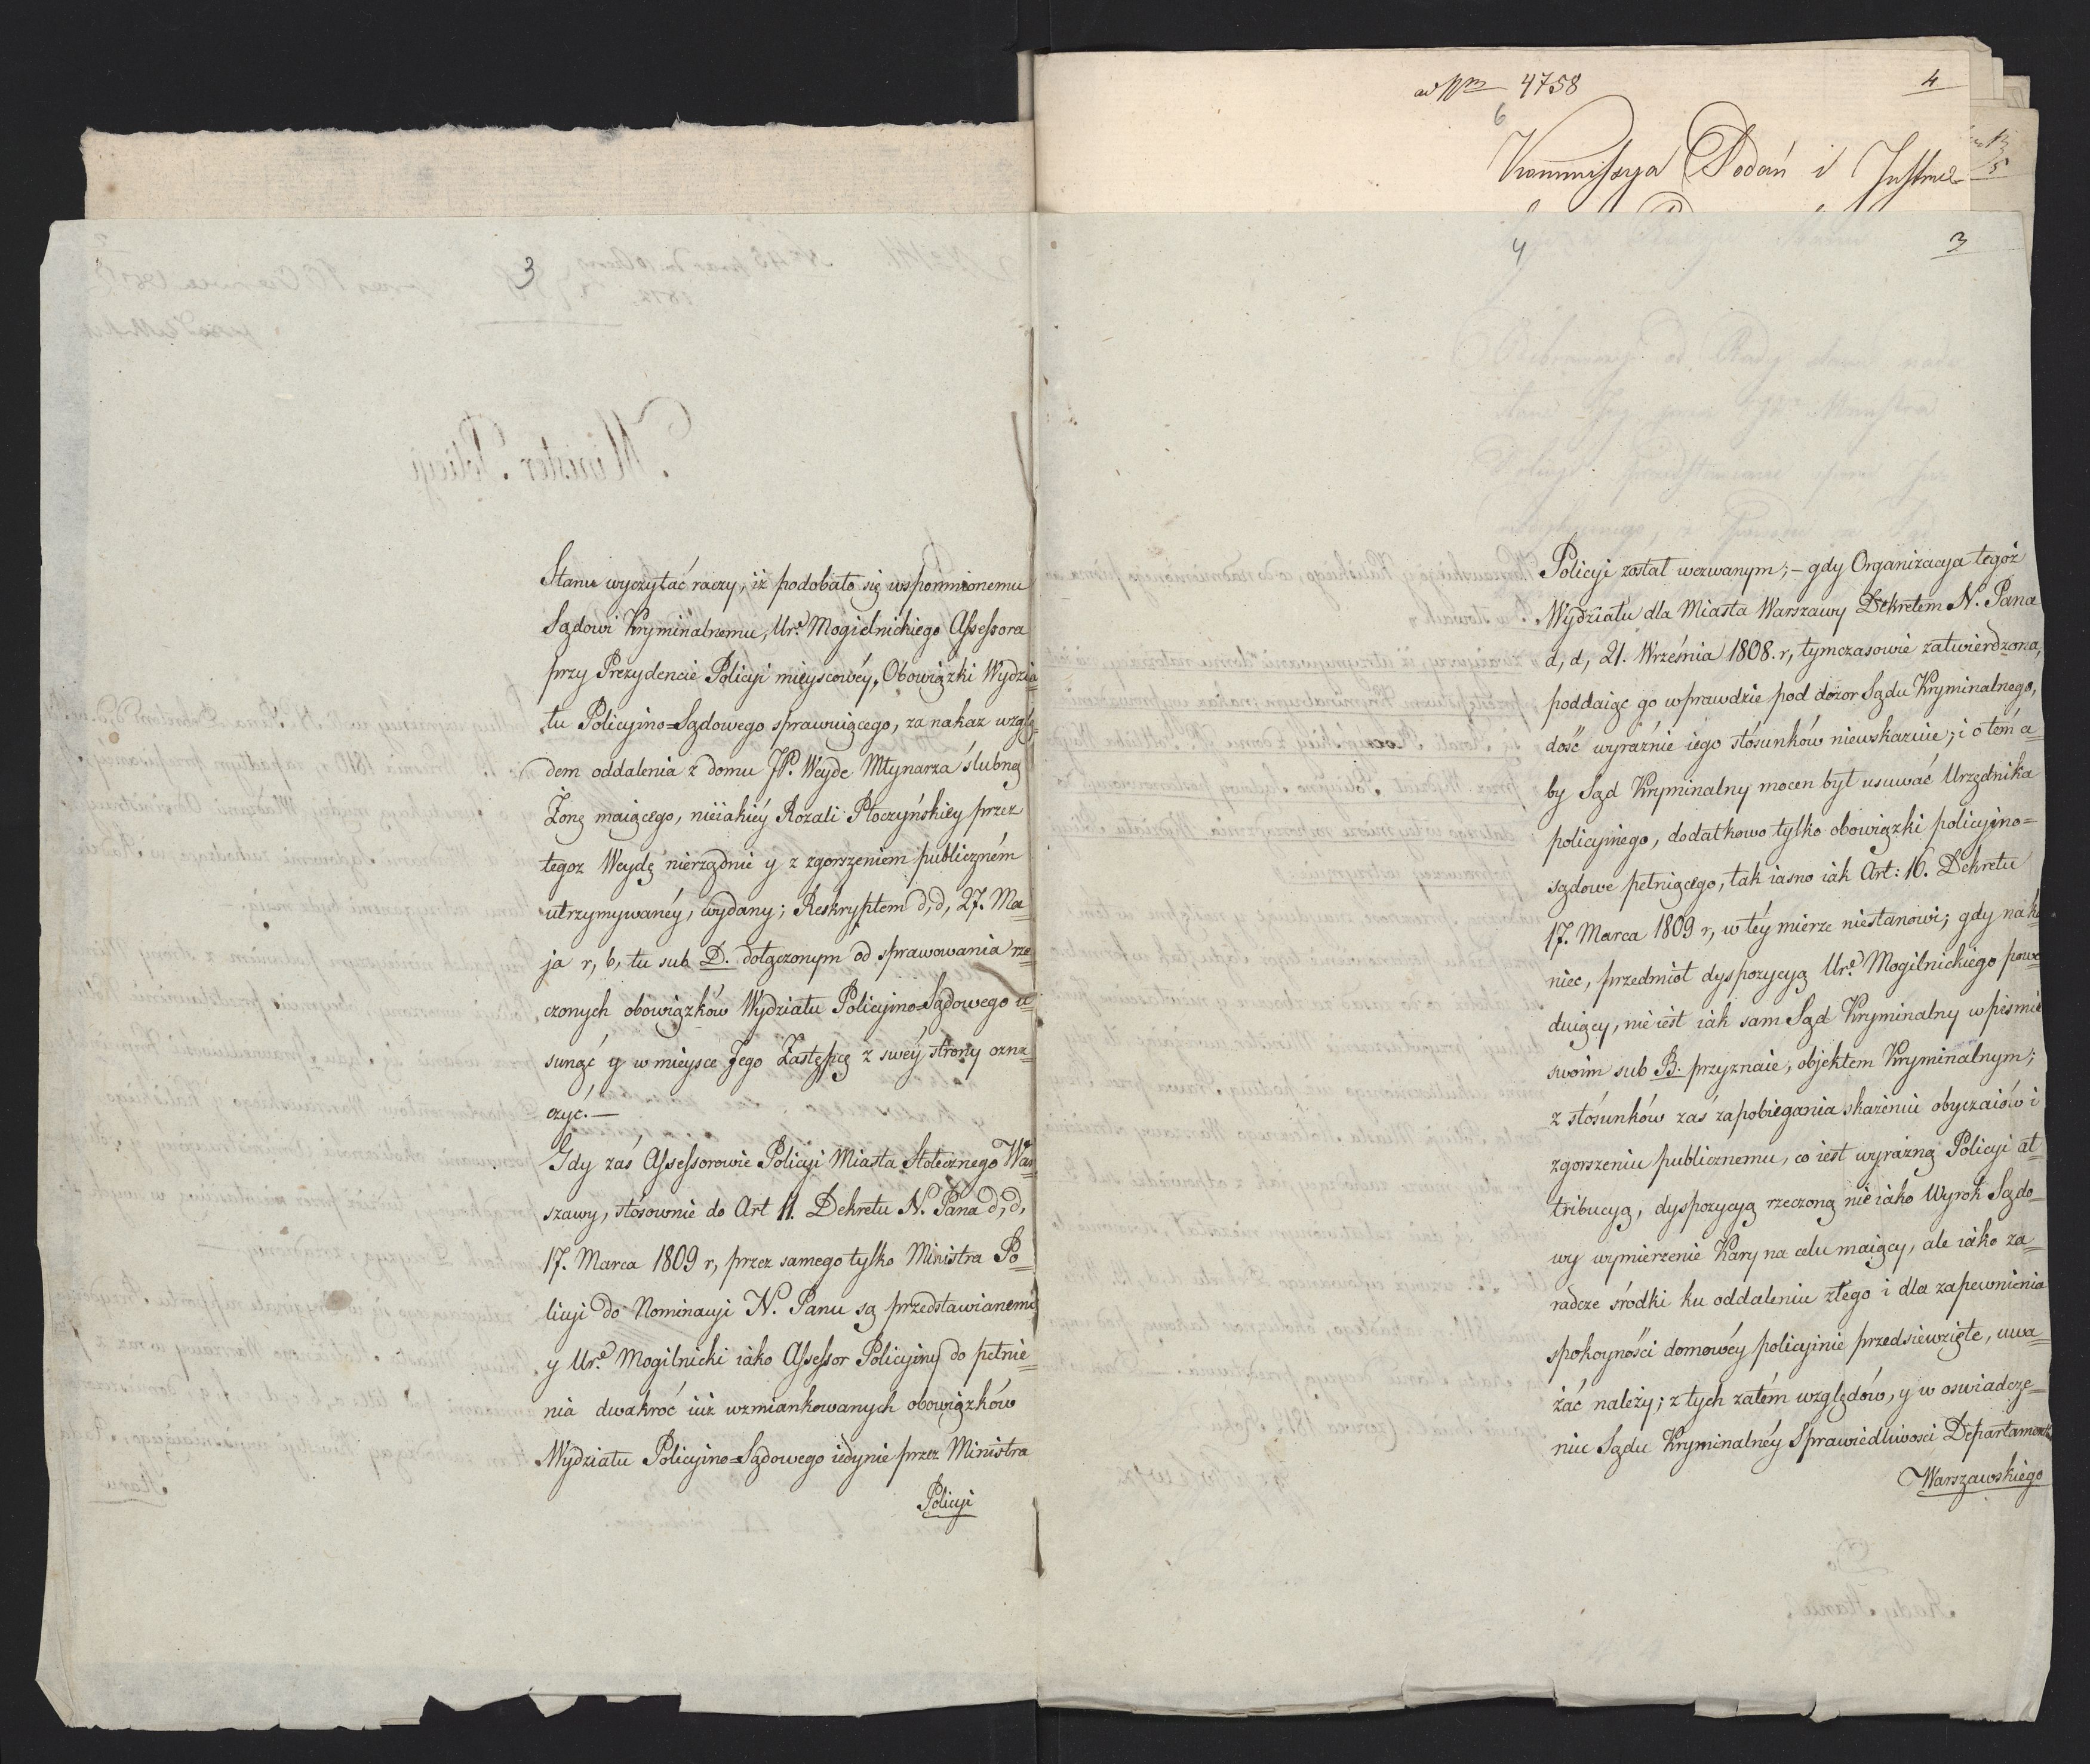 3
Stanu wyczytać raczy, iż podobało się wspomnionemu
Sądowi Kryminalnemu, Ur. Mogielnickiego Assessora
przy Prezydencie Policyi mieyscowéy, Obowiązki Wydzia=
łu Policyino=Sądowego sprawuiącego, za nakaz wzglę=
dem oddalenia z domu JP. Weyde Młynarza ślubną
Żonę maiącego, nieiakiéy Rozali Płoczyńskiéy przez
tegoz Weydę nierządnie y z zgorszeniem publiczném
utrzymywanéy, wydany; Reskryptem d, d, 27. Ma=
ja r, b, tu sub D. dołączonym od sprawowania rze=
czonych obowiązków Wydziału Policyino=Sądowego u=
sunąć y w mieysce Jego Zastępcę z swéy strony ozna=
czyć. —
Gdy zaś Assessorowie Policyi Miasta Stołecznego War=
szawy, stósownie do Art 11. Dekretu N. Pana d, d,
17. Marca 1809 r, przez samego tylko Ministra Po=
licyi do Nominacyi N. Panu są przedstawianemi
y Ur. Mogilnicki iako Assessor Policyiny do pełnie=
nia dwakróć iuż wzmiankowanych obowiązków
Wydziału Policyino=Sądowego iedynie przez Ministra
Policyi
4758
4
6
Kommissya Podań i
4
3
Policyi został wezwanym; – gdy Organizacya tegóż
Wydziału dla Miasta Warszawy Dekretem N. Pana
d, d, 21. Września 1808. r, tymczasowie zatwierdzona,
poddaiąc go wprawdzie pod dozor Sądu Kryminalnego,
dość wyraźnie iego stósunków niewskazuie; i o tém a=
by Sąd Kryminalny mocen był usuwać Urzędnika
policyinego, dodatkowo tylko obowiązki policyino=
sądowe pełniącego, tak iasno iak Art: 16. Dekretu
17. Marca 1809 r, w téy mierze niestanowi; gdy nako
niec, przedmiot dyspozycyą Ur. Mogilnickiego powo
duiący, nie iest iak sam Sąd Kryminalny w piśmie
swoim sub B. przyznaie, objektem Kryminalnym;
z stósunków zaś zapobiegania skażeniu obyczaiów i
zgorszeniu publicznemu, co iest wyraźną Policyi at=
tribucyą, dyspozycyą rzeczoną nie iako Wyrok Sądo=
wy wymierzenie Kary na celu maiący, ale iako za=
radcze środki ku oddaleniu złego i dla zapewnienia
spokoyności domowéy policyinie przedsiewzięte, uwa=
żać należy; z tych zatém względów, y w oswiadcze=
niu Sądu Kryminalnéy Sprawiedliwosci Departamentu
Warszawskiego